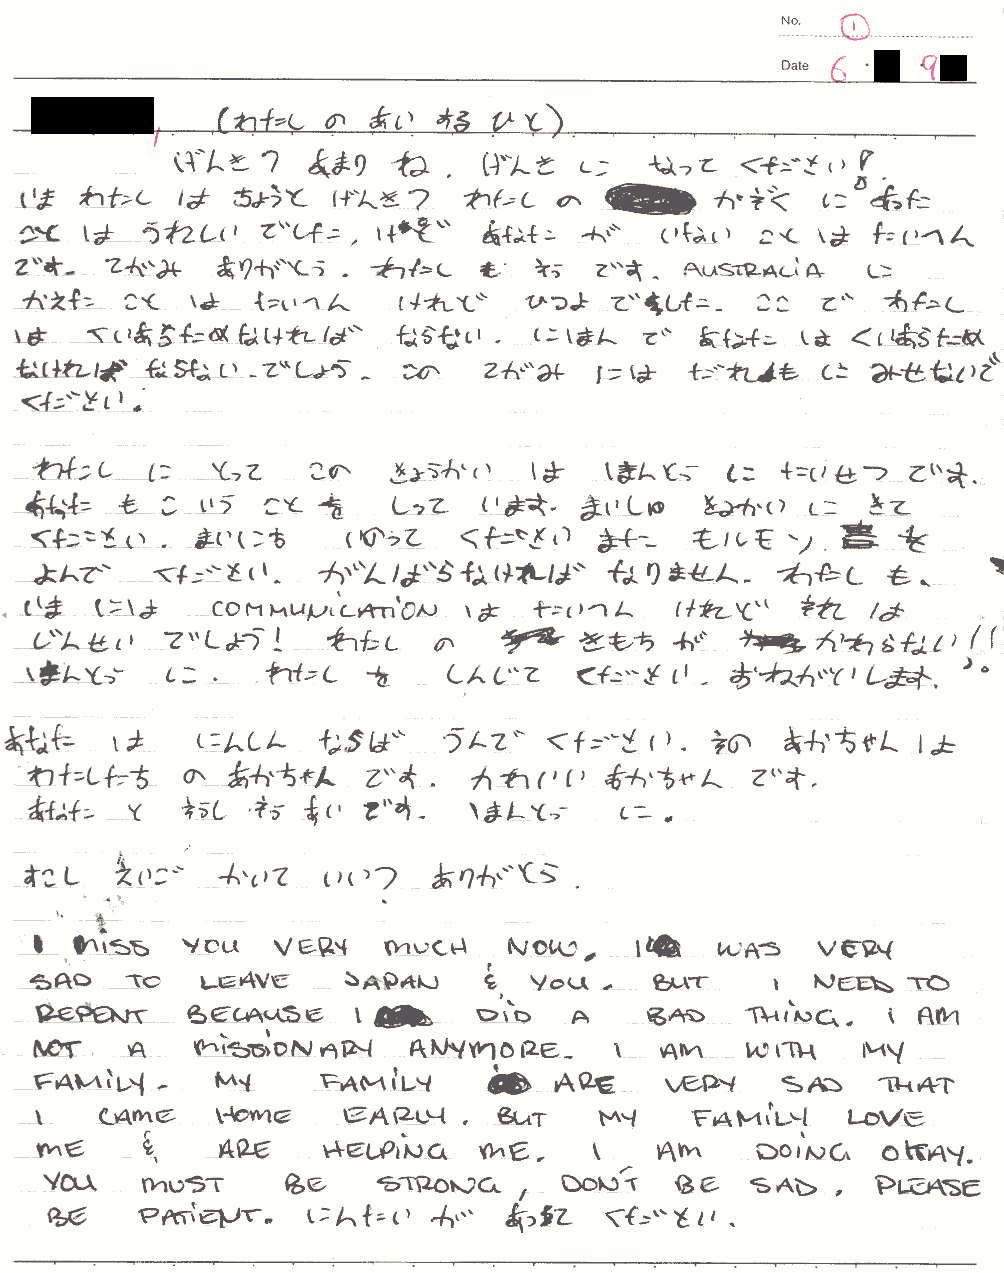 No. 1
Date 6 · · 9
(わたし の あい する ひと)
げんき? あまり ね. げんき に なって ください!
いま わたし は ちょうと げんき? わたし の かぞく に あった
こと は うれしい でした, けど あなた が いない こと は たいへん
です. てがみ ありがとう. わたし も そう です. AUSTRALIA に
かえた こと は たいへん けれど ひつよ でした. ここ で わたし
は くいあらためなければ ならない. にほん で あなた は くいあらため
なければ ならない.でしょう. この てがみ には だれ も に みせないで
ください.
わたし に とって この きょうかい は ほんとう に たいせつ です.
あなた も こ いう こと を しって います. まいしゅ きょかい に きて
ください. まいにち いのって ください また モルモン 書 を
よんで ください. がんばらなければ なりません. わたし も.
いま には COMMUNICATION は たいへん けれど それ は
じんせい でしょう! わたし の きもち が かわらない!!
ほんとう に. わたし を しんじて ください. おねがいします.
あなた は にんしん ならば うんで ください. その あかちゃん は
わたしたち の あかちゃん です. かわいい あかちゃん です.
あなた と そうし そう あい です. ほんとう に.
すこし えいご かいて いい? ありがとう.
I MISS YOU VERY MUCH NOW. I WAS VERY
SAD TO LEAVE JAPAN & YOU. BUT I NEED TO
REPENT BECAUSE I DID A BAD THING. I AM
NOT A MISSIONARY ANYMORE. I AM WITH MY
FAMILY. MY FAMILY ARE VERY SAD THAT
I CAME HOME EARLY. BUT MY FAMILY LOVE
ME & ARE HELPING ME. I AM DOING OKAY.
YOU MUST BE STRONG, DON'T BE SAD. PLEASE
BE PATIENT. にんたい が あって ください.